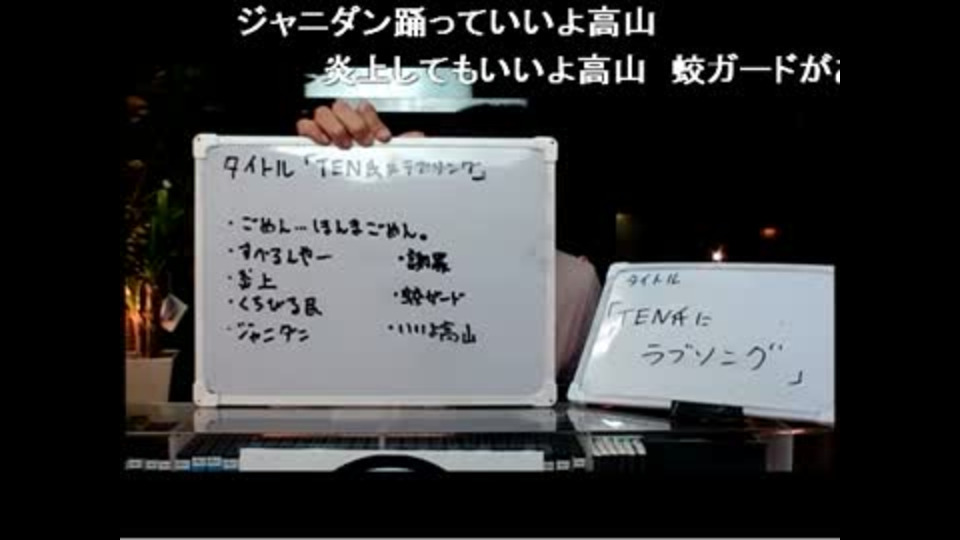 ジャニダン踊っていいよ高山
炎上してもいいよ高山 蛟ガードがあ
タイトル「TEN氏にラブソング」
・ごめん…ほんまごめん。
・すべらしやー
・炎上
・くちびる民
・ジャニダン
・謝罪
・蛟ガード
・いいよ高山
タイトル
「TEN氏に
ラブソング」